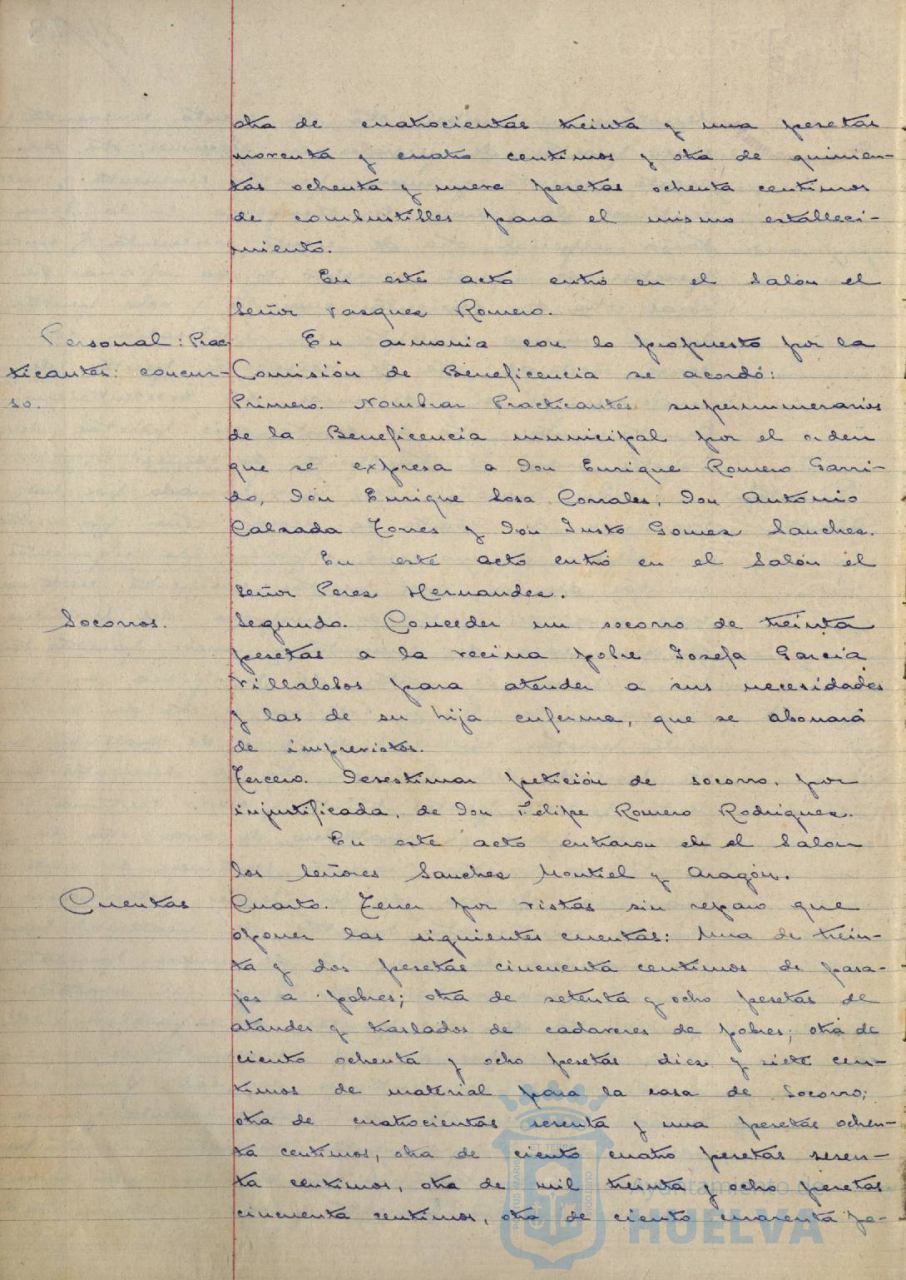 otra de cuatrocientas treinta y una pesetas
noventa y cuatro centimos y otra de quinien-
tas ochenta y nueve pesetas ochenta centimos
de combustibles para el mismo estableci-
miento.
En este acto entró en el Salón el
Señor Vasquez Romero.
Personal: Prac-
ticantes: concur-
so.
En armonia con lo propuesto por la
Comisión de Beneficencia se acordó:
Primero. Nombrar Practicantes supernumerarios
de la Beneficencia municipal por el orden
que se expresa a Don Enrique Romero Garri-
do, Don Enrique Sosa Corrales, Don António
Calzada Torres y Don Justo Gomez Sanchez.
En este acto entró en el Salón el
Señor Perez Hernandez.
Socorros.
Segundo. Conceder un socorro de treinta
pesetas a la vecina pobre Josefa García
Villalobos para atender a sus necesidades
y las de su hija enferma, que se abonará
de imprevistos.
Tercero. Desestimar petición de socorro, por
injustificada, de Don Felipe Romero Rodriguez.
En este acto entraron en el Salón
los Señores Sanchez Montiel y Aragón.
Cuentas
Cuarto. Tener por vistas sin reparo que
oponer las siguientes cuentas: Una de trein-
ta y dos pesetas cincuenta centimos de pasa-
jes a pobres; otra de setenta y ocho pesetas de
ataudes y traslados de cadaveres de pobres; otra de
ciento ochenta y ocho pesetas diez y siete cen-
timos de material para la casa de Socorro;
otra de cuatrocientas sesenta y una pesetas ochen-
ta centimos, otra de ciento cuatro pesetas sesen-
ta centimos, otra de mil treinta y ocho pesetas
cincuenta centimos, otra de ciento cuarenta pe-
Ayuntamiento de
HUELVA